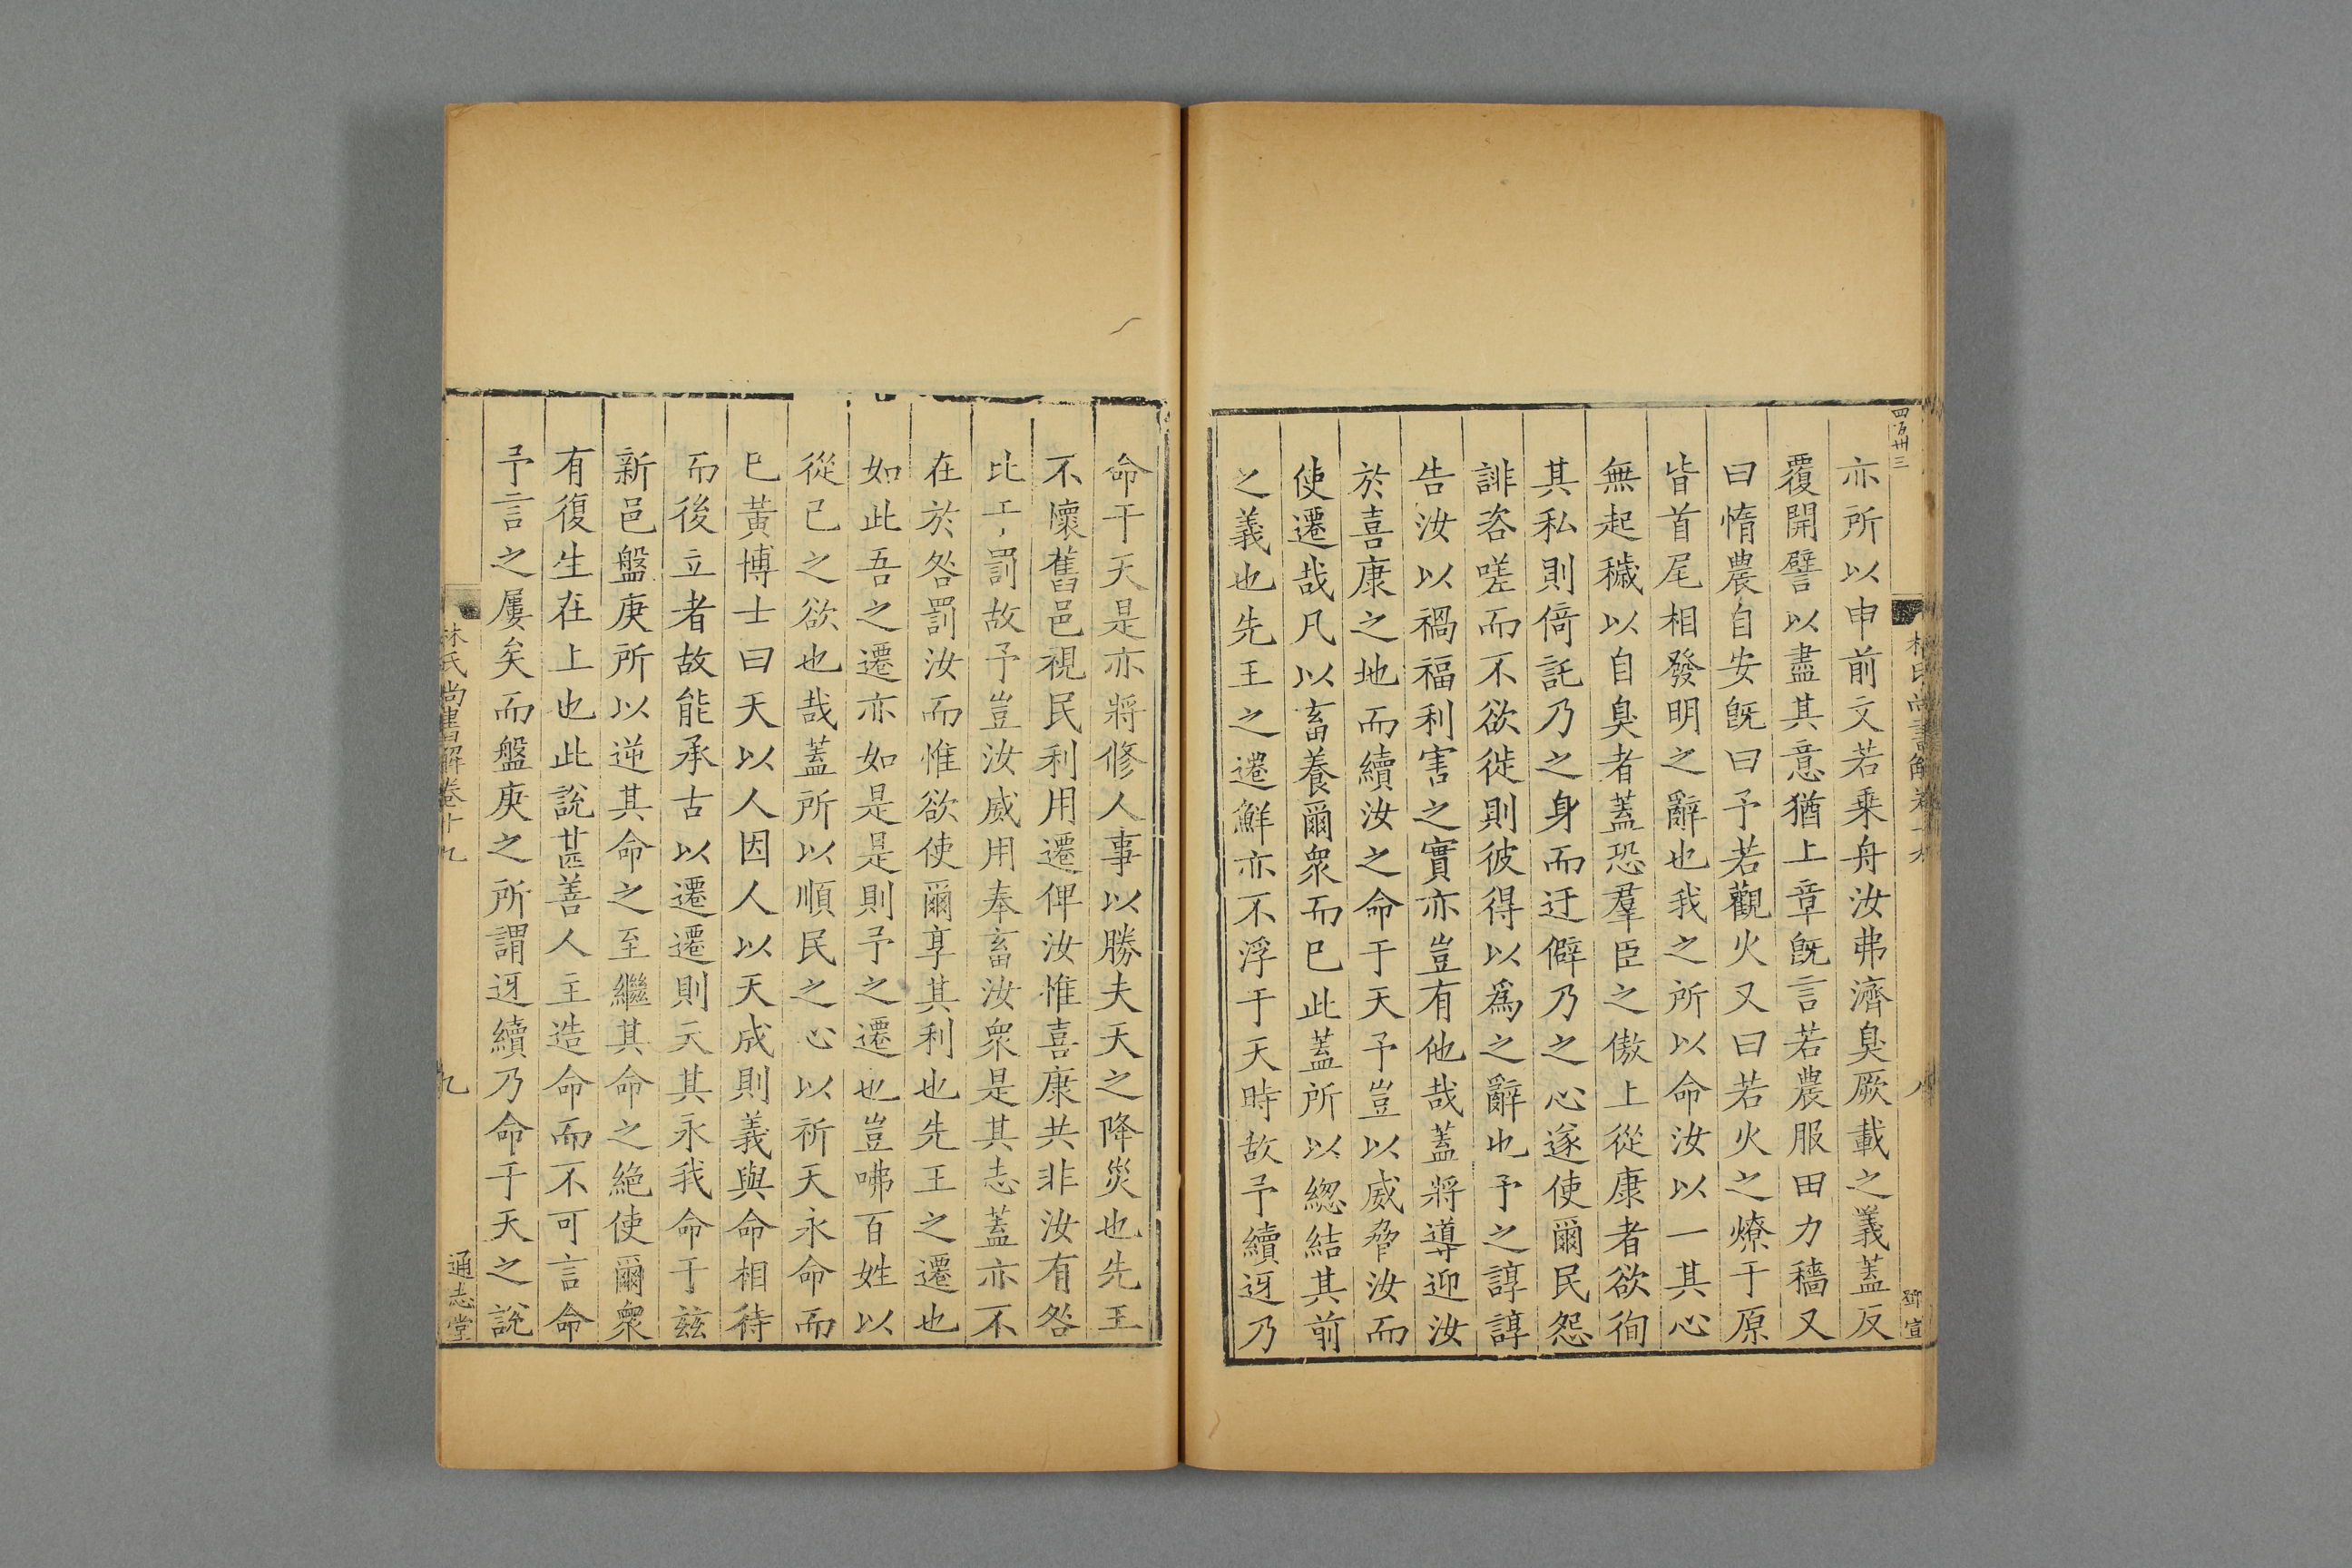 四百卅三
林氏尚書解卷十九
八
鄧宣
亦所以申前文若乗舟汝弗濟臭厥載之義蓋反
覆開譬以盡其意猶上章旣言若農服田力穡又
曰惰農自安旣曰予若觀火又曰若火之燎于原
皆首尾相發明之辭也我之所以命汝以一其心
無起穢以自臭者蓋恐羣臣之傲上從康者欲徇
其私則倚託乃之身而迂僻乃之心遂使爾民怨
誹咨嗟而不欲徙則彼得以爲之辭也予之諄諄
告汝以禍福利害之實亦豈有他哉蓋將導迎汝
於喜康之地而續汝之命于天予豈以威脅汝而
使遷哉凡以畜養爾衆而巳此蓋所以緫結其前
之義也先王之遷鮮亦不浮于天時故予續迓乃
命于天是亦將修人事以勝夫天之降災也先王
不懷舊邑視民利用遷俾汝惟喜康共非汝有咎
比于罰故予豈汝威用奉畜汝衆是其志蓋亦不
在於咎罰汝而惟欲使爾享其利也先王之遷也
如此吾之遷亦如是是則予之遷也豈咈百姓以
從己之欲也哉蓋所以順民之心以祈天永命而
巳黃博士曰天以人因人以天成則義與命相待
而後立者故能承古以遷遷則天其永我命于兹
新邑盤庚所以逆其命之至繼其命之絶使爾衆
有復生在上也此說甚善人主造命而不可言命
予言之屢矣而盤庚之所謂迓續乃命于天之說
林氏尚書解卷十九
九
通志堂